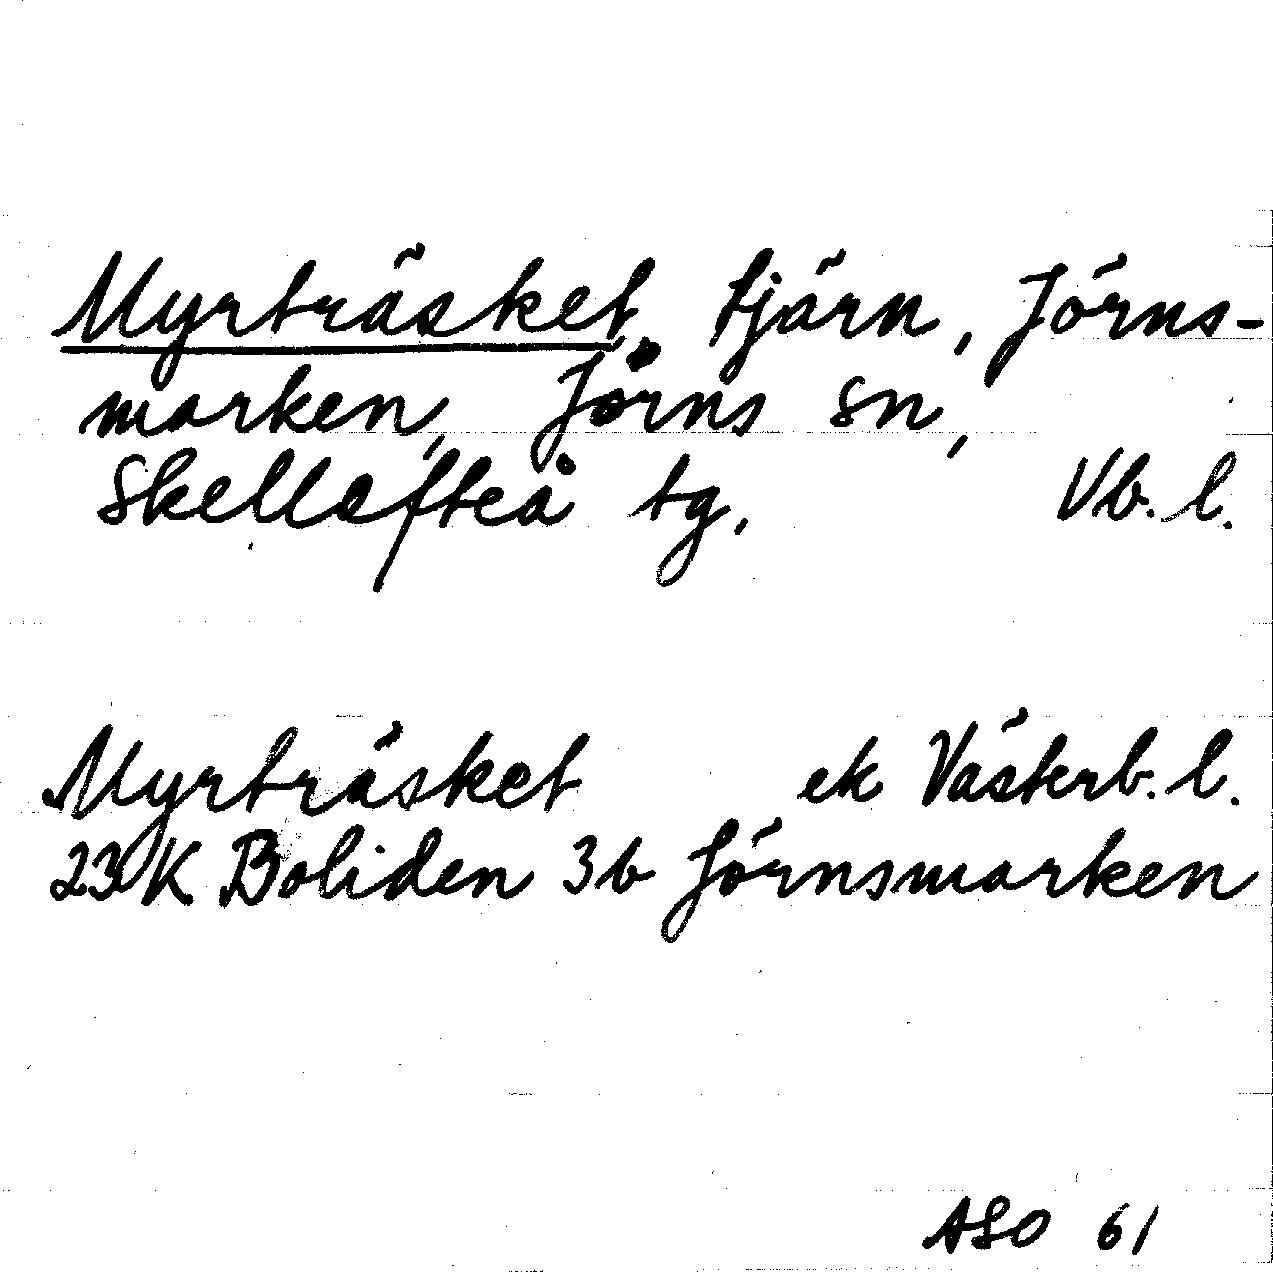 Myrträsket, tjärn, Jörns-
marken, Jörns sn,
Skellefteå tg. Vb. l.
Myrträsket ek Västerb. l.
23K Boliden 3b Jörnsmarken
ASO 61